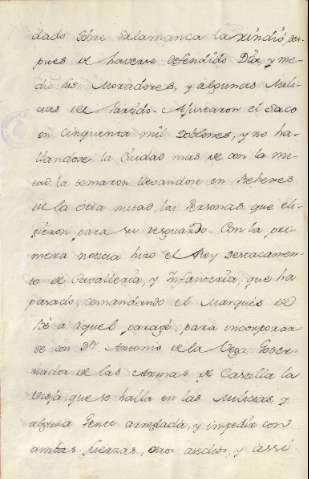 dado sobre Salamanca la rindió, des-
pues de haverse defendido Dia, y me-
dio los Moradores, y algunas Mili-
cias del Partido. Ajustaron el Saco
en cinquenta mil Doblones, y no ha-
llandose la Ciudad mas de con la mi-
tad la tomaron llevandose en Rehenes
de la otra mitad, las Personas que eli-
gieron para su resguardo. Con la pri-
mera noticia hizo el Rey destacamen-
to de Cavalleria, y Infanteria, que ha
pasado, comandando el Marques de
Bé a aquel parage, para incorporar-
se con Dn. Antonio de la Vega Gover-
nador de las Armas de Castilla la
Vieja que se halla con las Milicias y
alguna Gente arreglada, y impedir con
ambas fuerzas, otro